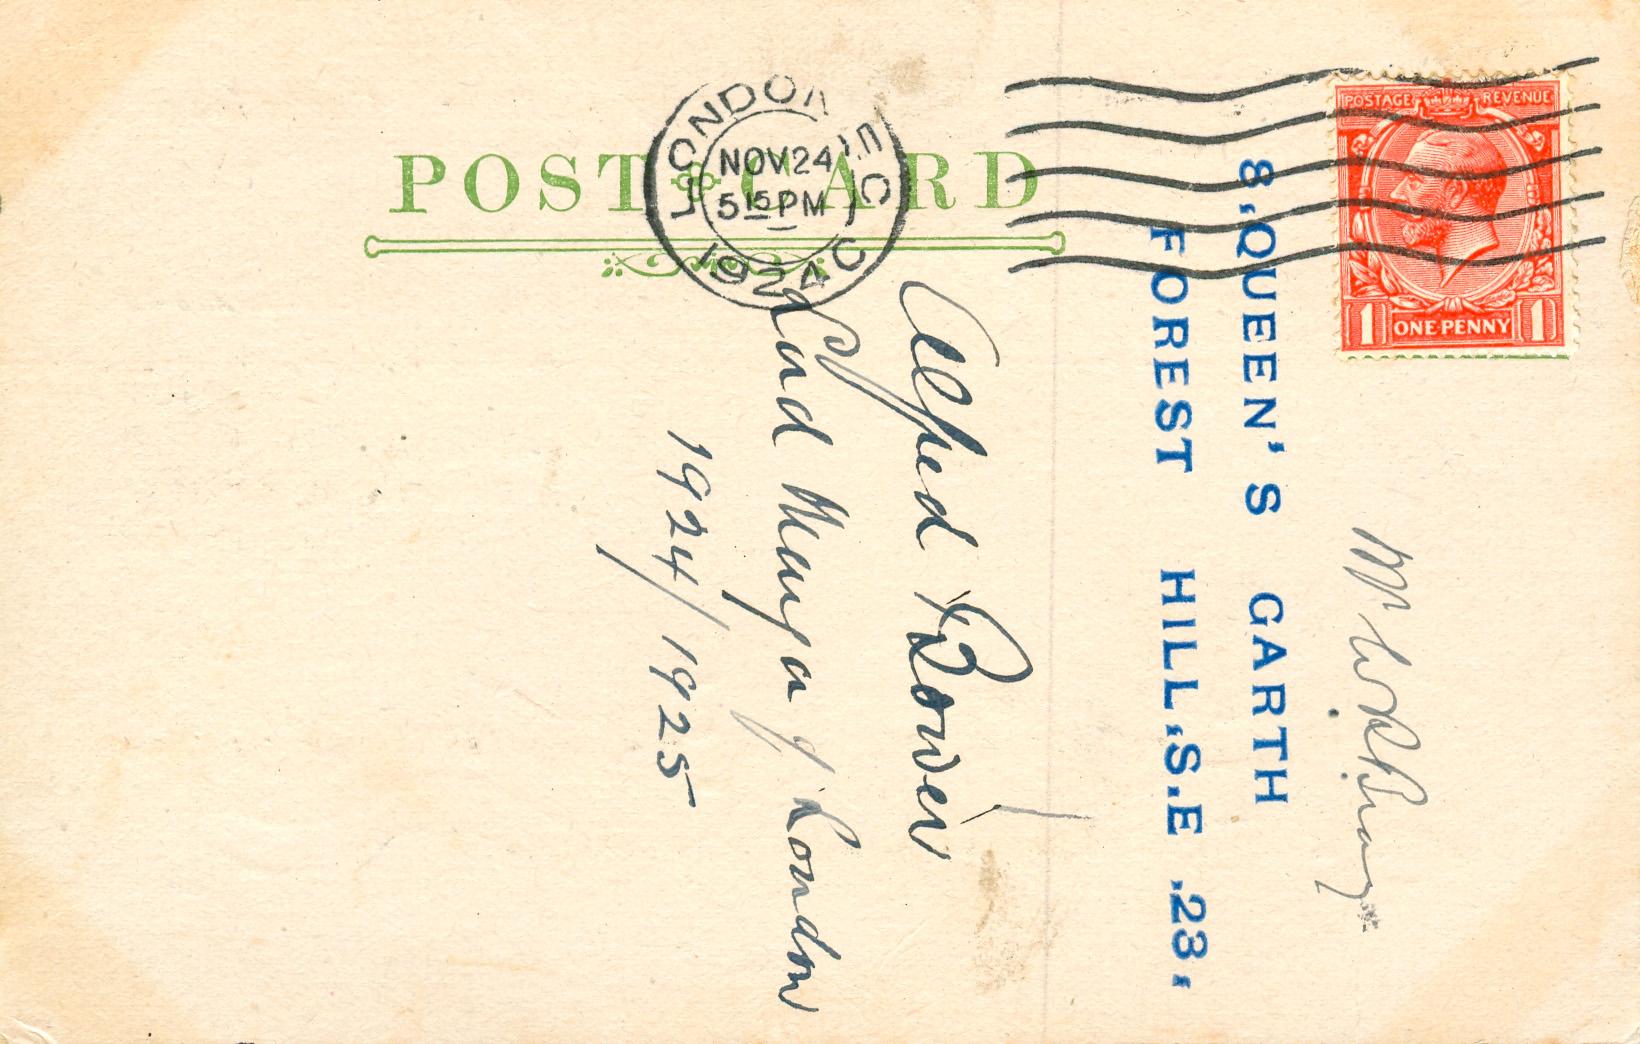 POST CARD
LONDON E.C.
NOV 24
5 15 PM
1924
C
POSTAGE REVENUE
1 ONE PENNY 1
8,QUEEN'S GARTH
FOREST HILL,S.E.23,
Alfred Bower
Lord Mayor of London
1924/1925